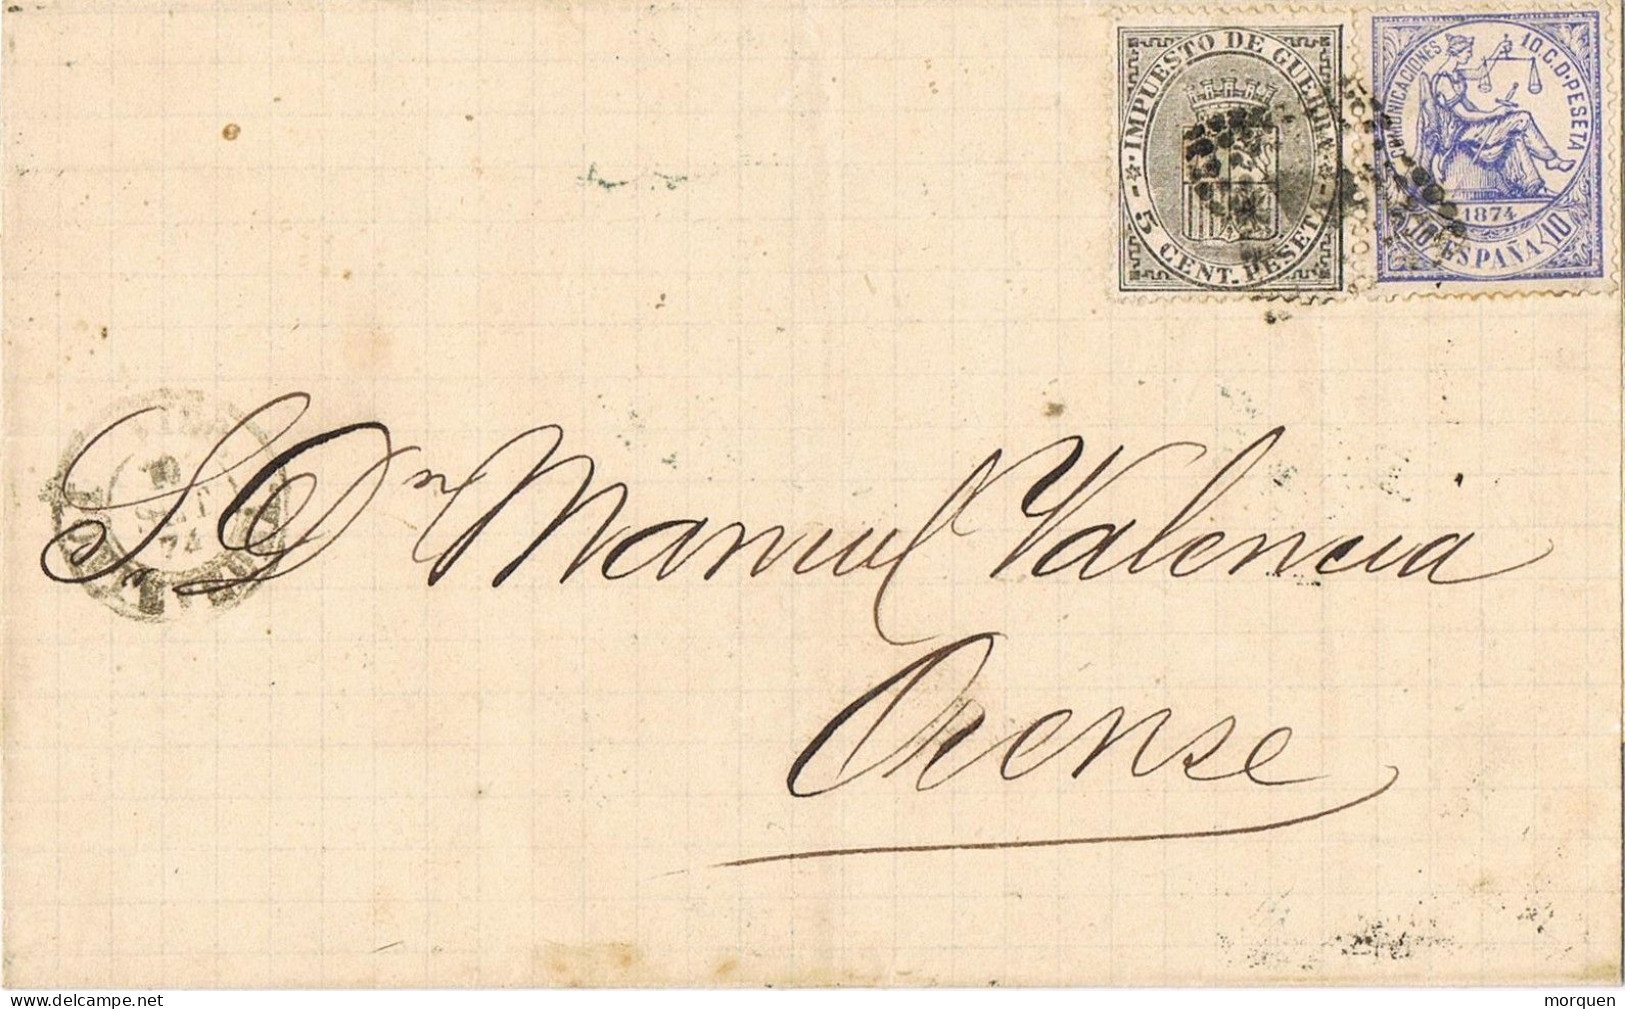 IMPUESTO DE GUERRA
5 CENT. PESETA
COMUNICACIONES 10 C. D. PESETA
1874
10 ESPAÑA 10
SET
74
S. Dn Manuel Valencia
Orense
morquen